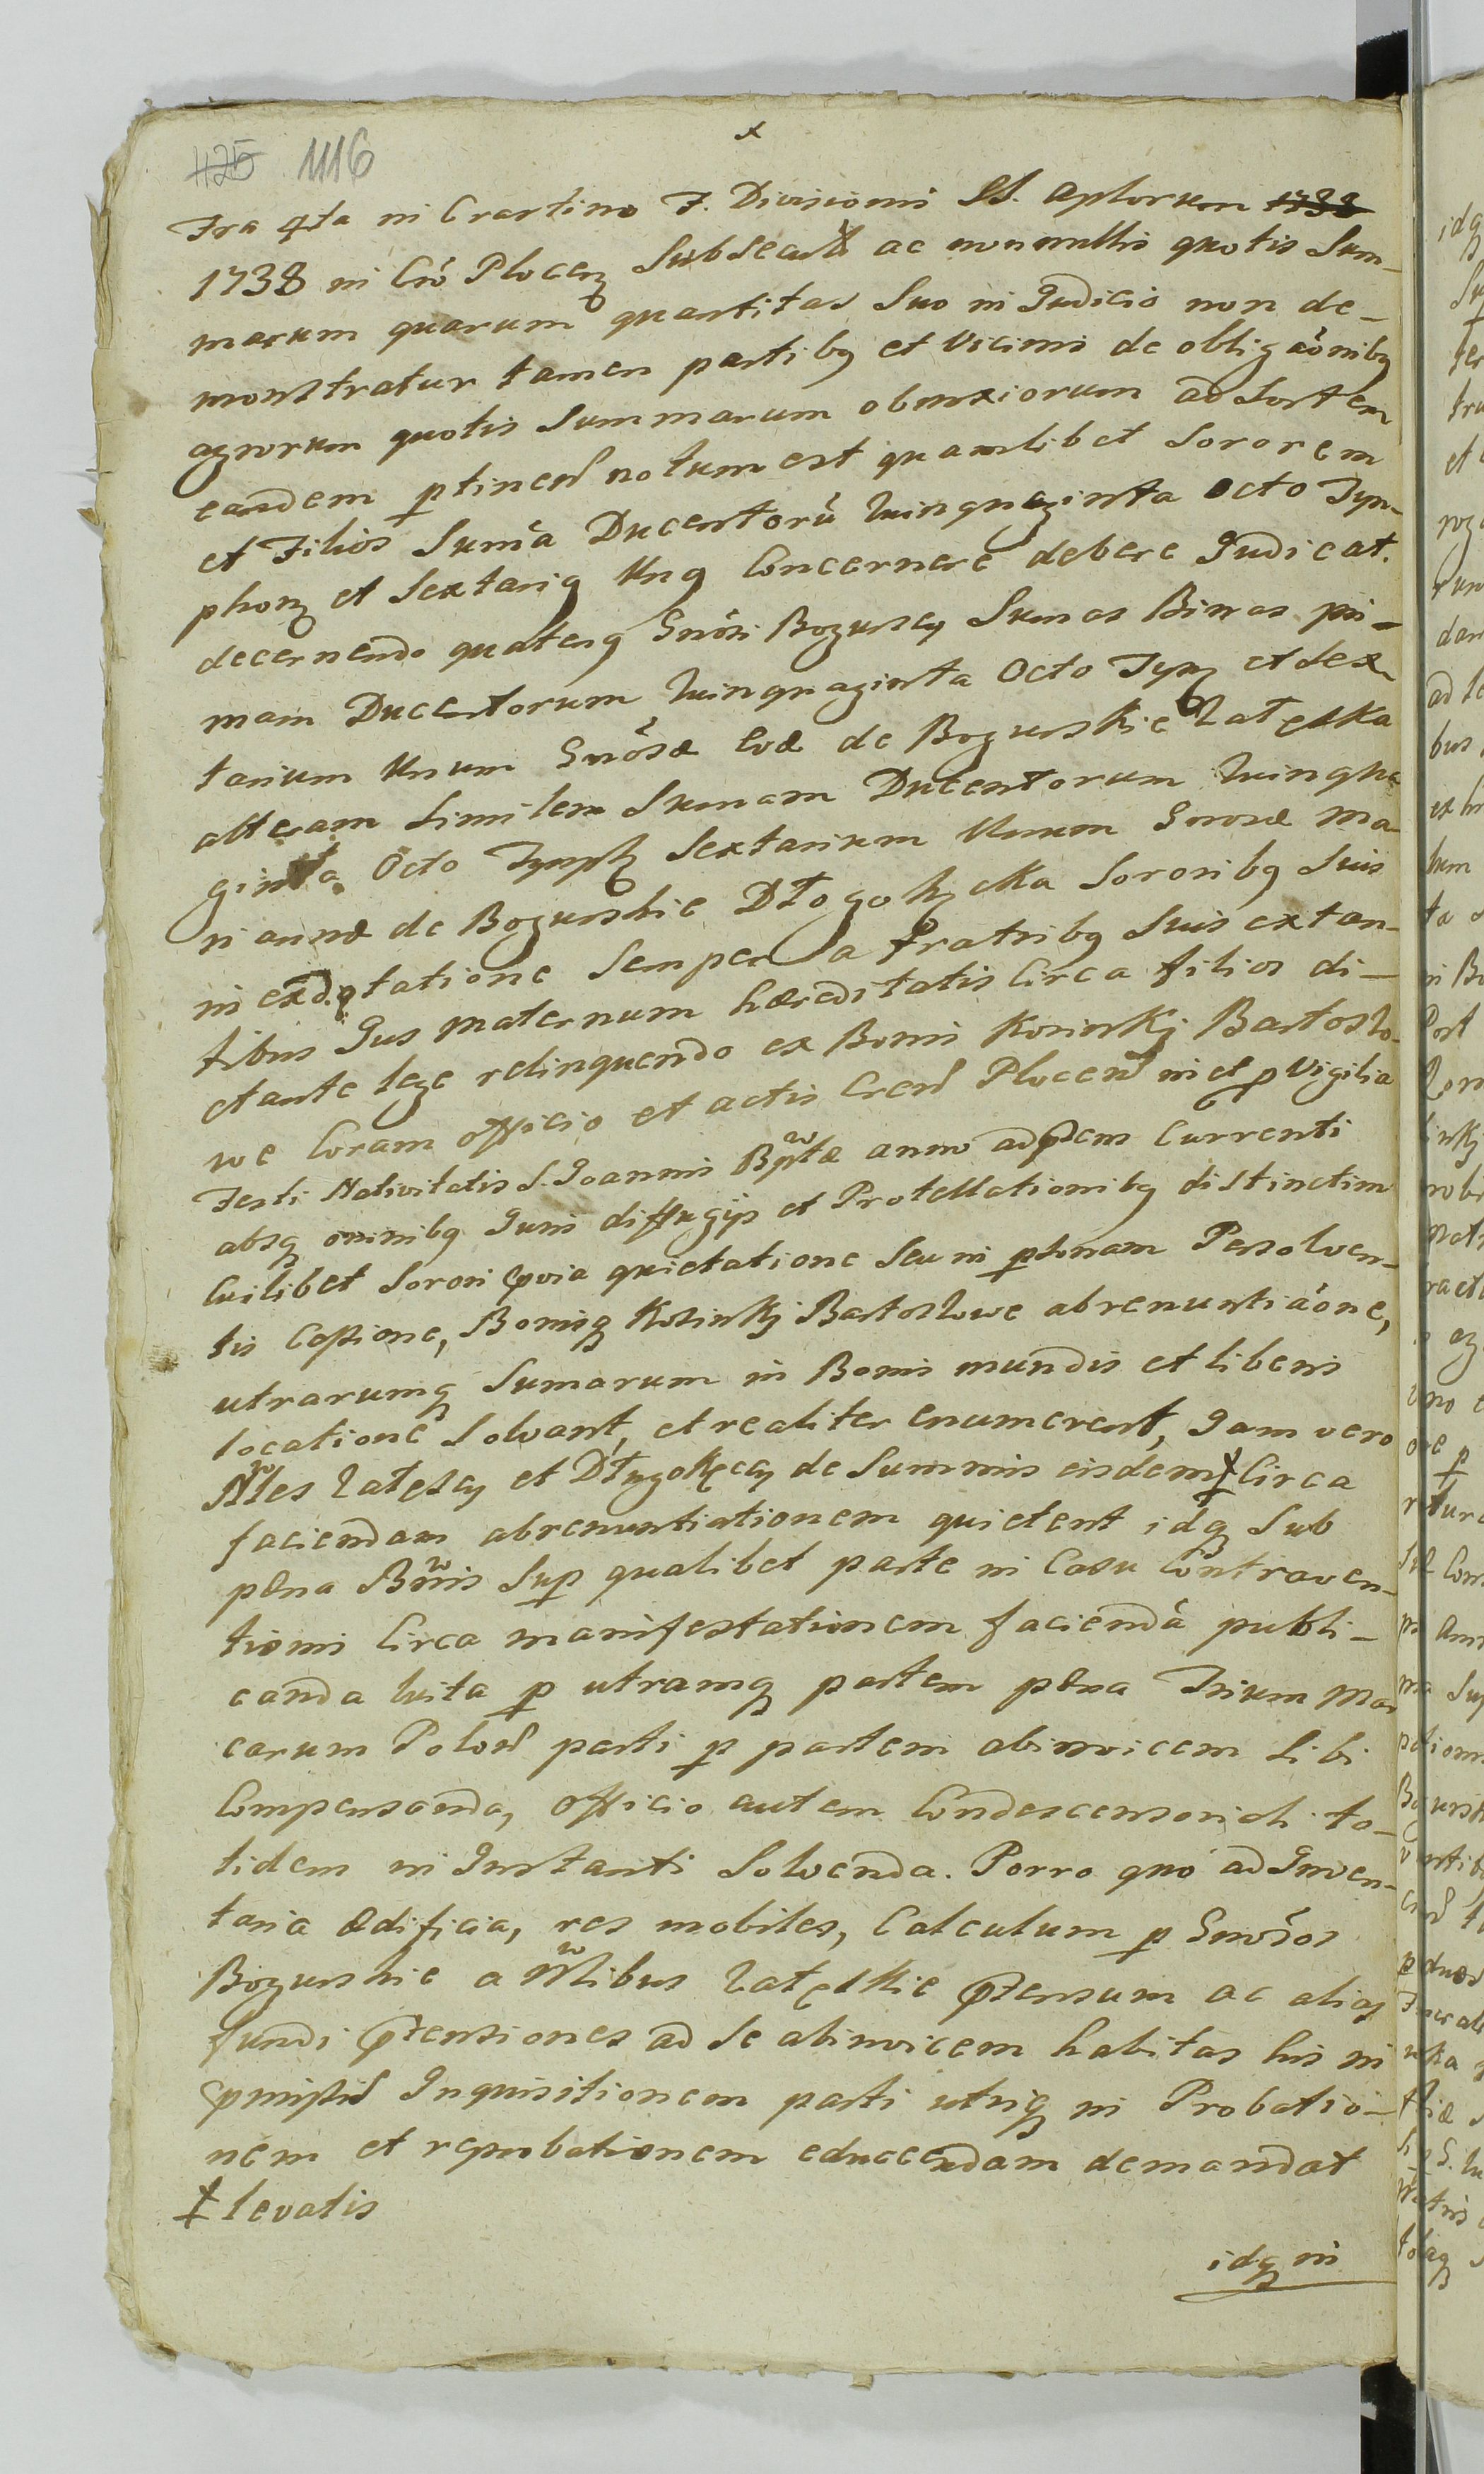 x
425 1116
Fra 4ta in Crastino F. Divisionis SS. Aplorum 1738
1738 in Crö Plocen Subsecut ac nonnullis quotis Sum-
marum quarum quantitas Suo in Judicio non de-
monstratur tamen partibq et Vicinis de obligaõnibq
agrorum quotis Summarum obnoxiorum ad Sortem
eandem ptinen notum est quamlibet Sororem
et Filios Sumã Ducentorũ Quinquaginta Octo Tym-
phonz et Sextariq Unq Concernere debere Judicat.
decernendo quatenq Gnõsi Bogurscy Sumas Binas pri-
mam Ducentorum Quinquaginta Octo Tymz et Sex
tarium Unum Gnõsæ Evæ de Bogurskie Zatęska
alteram Similem Sumam Ducentorum Quinqua
ginta Octo Tymph Sextarium Unum Gnosæ Ma-
riannæ de Bogurskie Dłogokęcka Sororibq Suis
in exdotatione Semper a Fratribq Suis extan-
tibus Jus Maternum hæreditatis Circa filios di-
ctante lege relinquendo ex Bonis Kosinkj Bartosło-
we Coram officio et actis Cren Plocen in et p Vigilia
Festi Nativitatis S. Joannis Bptæ anno adpdem Currenti
absq omnibq Juris diffugijs et Protestationibq distinctim
Cuilibet Sorori pvia quietatione Seu in psonam Persolven-
tis Cessione, Bonisq Kosinkj Bartosłowe abrenuntiaõne,
utrarumq Sumarum in Bonis mundis et liberis
locatione Solvant, et realiter enumerent, Jam vero
Nles Zatęscy et Długokęccy de Summis eisdem ‡ Circa
faciendam abrenuntiationem quietent idq Sub
pæna Bnnis Sup qualibet parte in Casu Contraven-
tionis Circa manifestationem faciendã publi-
canda luita p utramq partem pæna Trium Mar
carum Polon parti p partem abinvicem Sibi
Compensanda, Officio autem Condescensoriali to-
tidem in Instanti Solvenda. Porro quo ad Inven-
taria Ædificia, res mobiles, Calculum p Gnosos
Bogurskie a Nlibus Zatęskie ptensum ac aliaq
fundi ptensiones ad Se abinvicem habitas his in
pmissis Inquisitionem parti utriq in Probatio-
nem et reprobationem educendam demandat
‡ levatis
idq in